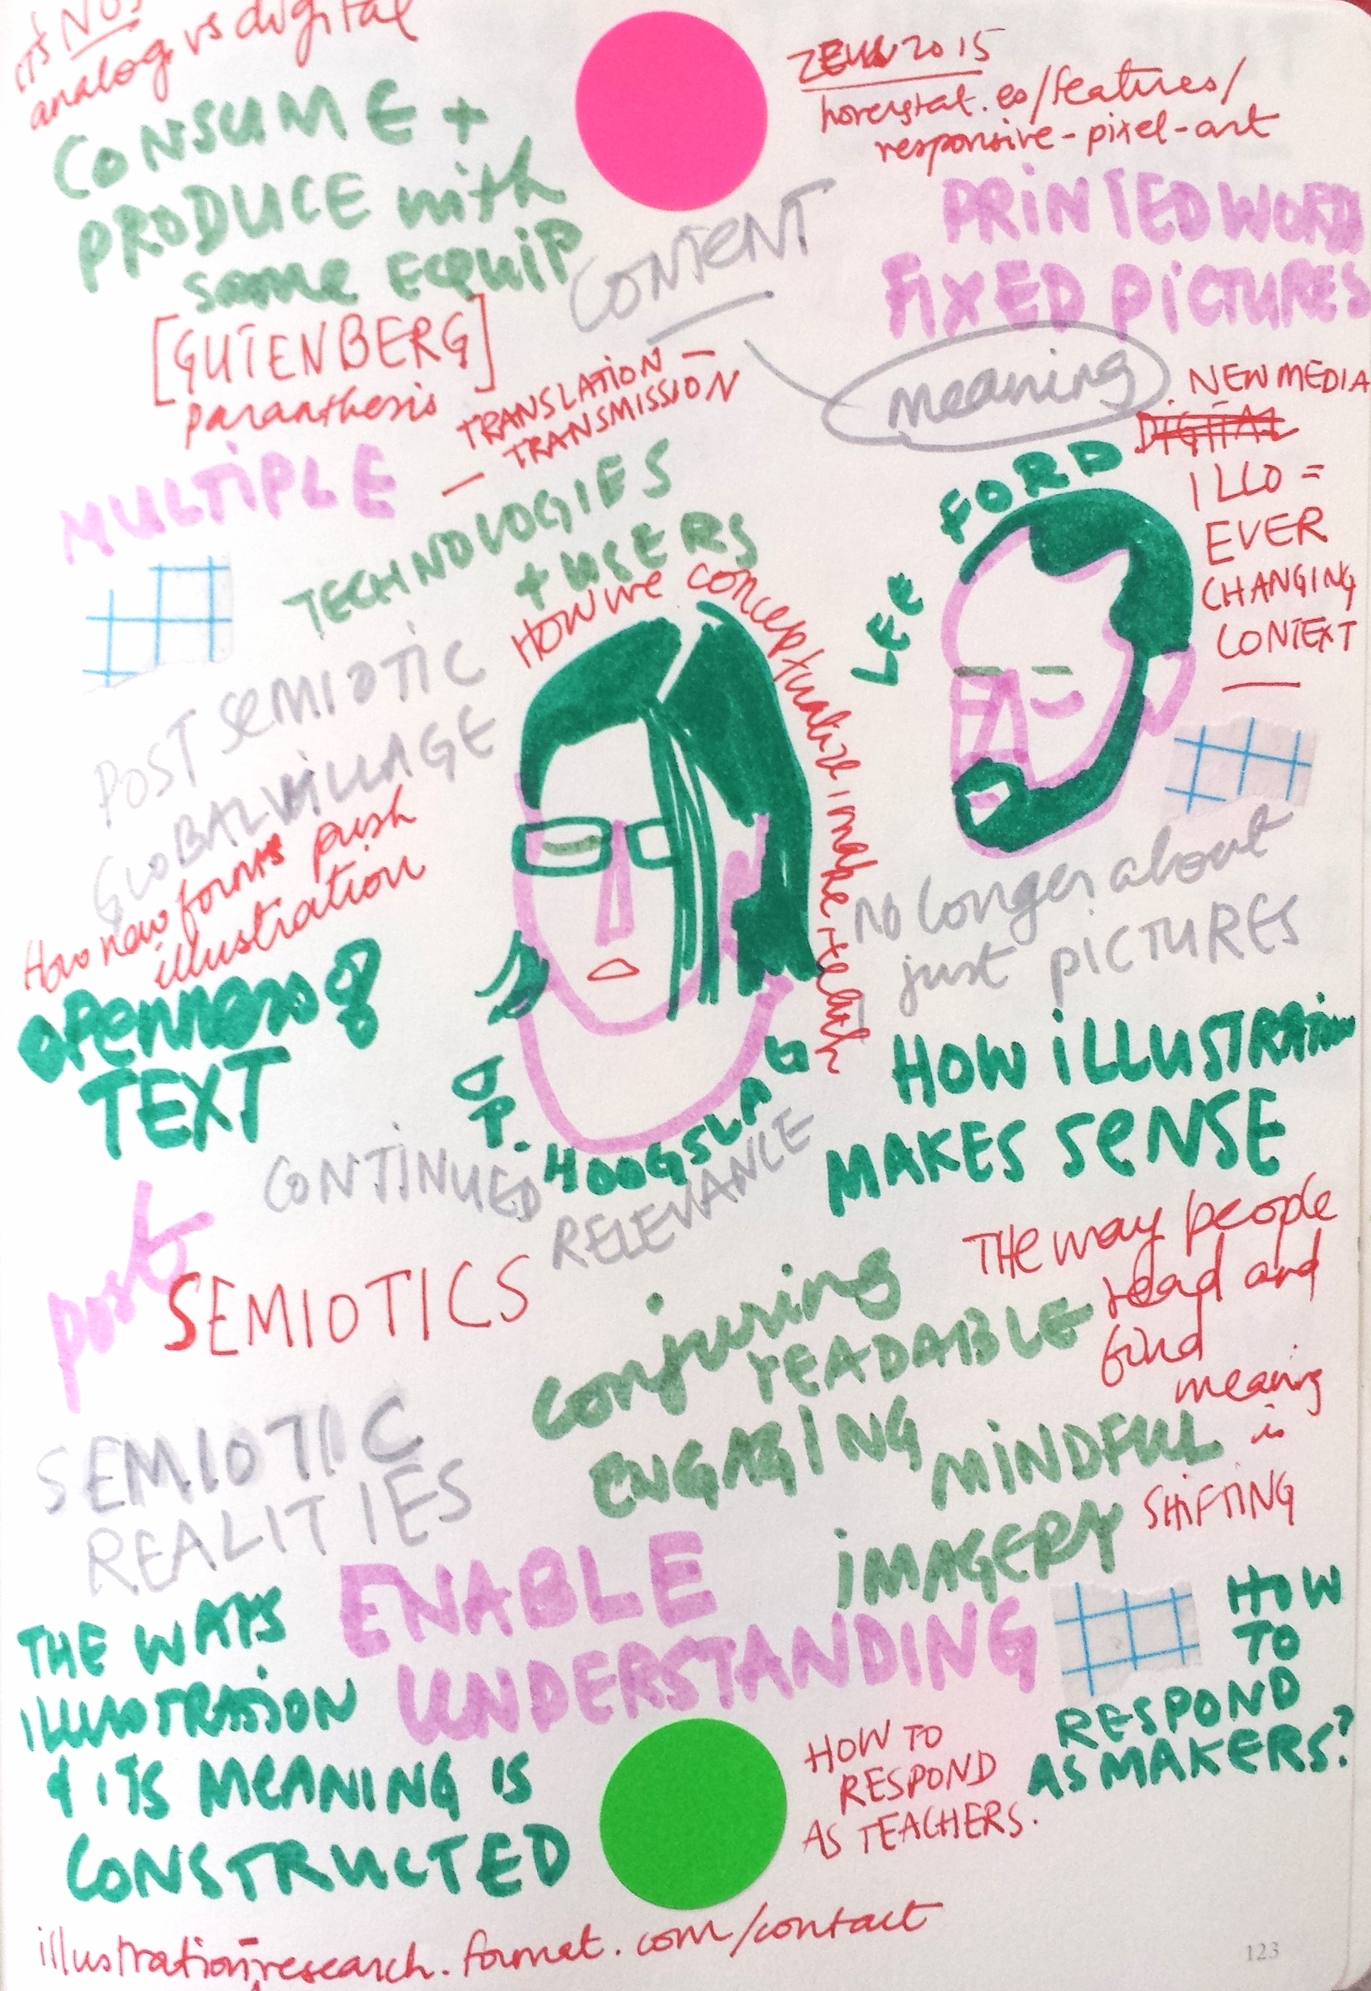 it's NOT
analog vs digital
CONSUME +
PRODUCE with
same EQUIP
[GUTENBERG]
paranthesis
ZEUN 2015
hoverstat.es/features/
responsive-pixel-art
CONTENT
PRINTED WORD
FIXED PICTURES
meaning
TRANSLATION —
— TRANSMISSION
MULTIPLE
TECHNOLOGIES
+ USERS
NEW MEDIA
DIGITAL
ILLO =
EVER
CHANGING
CONTEXT
LEE FORD
How we conceptualize, make, teach
POST SEMIOTIC
GLOBAL VILLAGE
How new forms push
illustration
OPENNESS OF
TEXT
no longer about
just PICTURES
HOW ILLUSTRATION
MAKES SENSE
HOOGSLAG
CONTINUED
RELEVANCE
post
SEMIOTICS
THE way people
read and
find
meaning
is
SHIFTING
conjuring
READABLE
ENGAGING
MINDFUL
IMAGERY
SEMIOTIC
REALITIES
ENABLE
UNDERSTANDING
THE WAYS
ILLUSTRATION
& ITS MEANING IS
CONSTRUCTED
HOW
TO
RESPOND
AS MAKERS?
HOW TO
RESPOND
AS TEACHERS.
illustration-research.format.com/contact
123